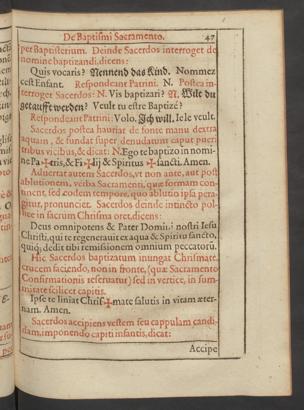 De Baptismi Sacramento. 47
per Baptisterium. Deinde Sacerdos interroget de
nomine baptizandi, dicens:
Quis vocaris? Nennend das Kind. Nommez
cest Enfant. Respondeant Patrini. N. Postea in-
terroget Sacerdos: N. Vis baptizari? N. Wilt du
getaufft werden? Veult tu estre Baptizé?
Respondeant Patrini: Volo. Ich will. Ie le veult.
Sacerdos postea hauriat de fonte manu dextra
aquam, & fundat super denudatum caput pueri
tribus vicibus, & dicat: N. Ego te baptizo in nomi-
ne Pa✠tris, & Fi✠lij & Spiritus ✠ sancti. Amen.
Aduertat autem Sacerdos, vt non ante, aut post
ablutionem, verba Sacramenti, quæ formam con-
tinent, sed eodem tempore, quo ablutio ipsa pera-
gitur, pronunciet. Sacerdos deinde intincto pol-
lice in sacrum Chrisma oret, dicens:
Deus omnipotens & Pater Domini nostri Iesu
Christi, qui te regenerauit ex aqua & Spiritu sancto,
quiq; dedit tibi remissionem omnium peccatorũ.
Hic Sacerdos baptizatum inungat Chrismate,
crucem faciendo, non in fronte, (quæ Sacramento
Confirmationis reseruatur) sed in vertice, in sum-
mitate scilicet capitis.
Ipse te liniat Chris✠mate salutis in vitam æter-
nam. Amen.
Sacerdos accipiens vestem seu cappulam candi-
dam, imponendo capiti infantis, dicat:
Accipe